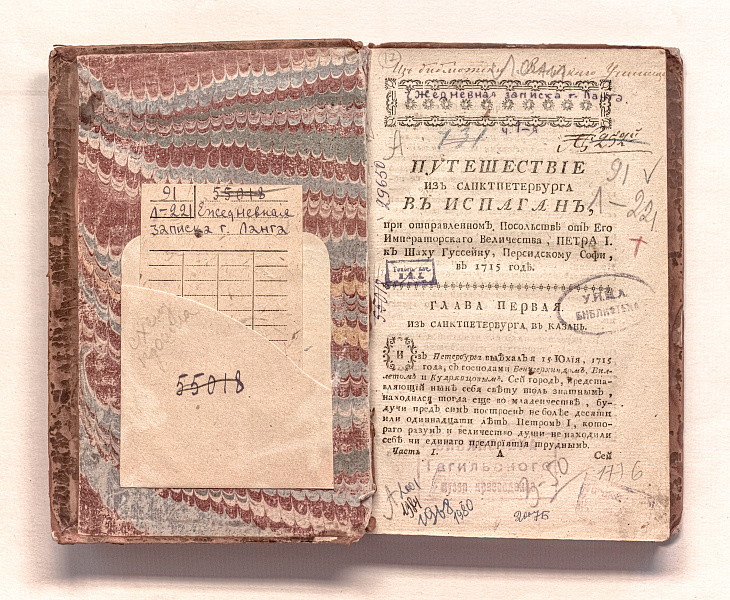 91
55018
Л-221
Ежедневная
записка г. Ланга
сухая
55018
12
Из библиотеки
Училища
Ежедневная записка г. Ланга.
ч. I-я
131
А
91
Л-221
29650
55018
ПУТЕШЕСТВІЕ
ИЗЪ САНКТПЕТЕРБУРГА
ВЪ ИСПАГАНЪ,
при отправленномъ, Посольствѣ отъ Его
Императорскаго Величества, ПЕТРА I.
къ Шаху Гуссейну, Персидскому Софи,
въ 1715 годѣ.
ГЛАВА ПЕРВАЯ.
ИЗЪ САНКТПЕТЕРБУРГА, ВЪ КАЗАНЬ.
У.И.Ц.А.
БИБЛИОТЕКА
Изъ Петербурга выѣхалъ я 15 Юлія, 1715
года, съ господами Венигеркиндомъ, Бил-
летомъ и Кудрявцовымъ. Сей городъ, представ-
ляющій нынѣ себя свѣту толь знатнымъ,
находился тогда еще во младенчествѣ, бу-
дучи предъ симъ построенъ не болѣе десяти
или одиннадцати лѣтъ Петромъ I, кото-
раго разумъ и величество души не находили
себѣ ни единаго предпріятія труднымъ.
Часть I.
А
Сей
Тагильского
1776
1968
1980
2007Б